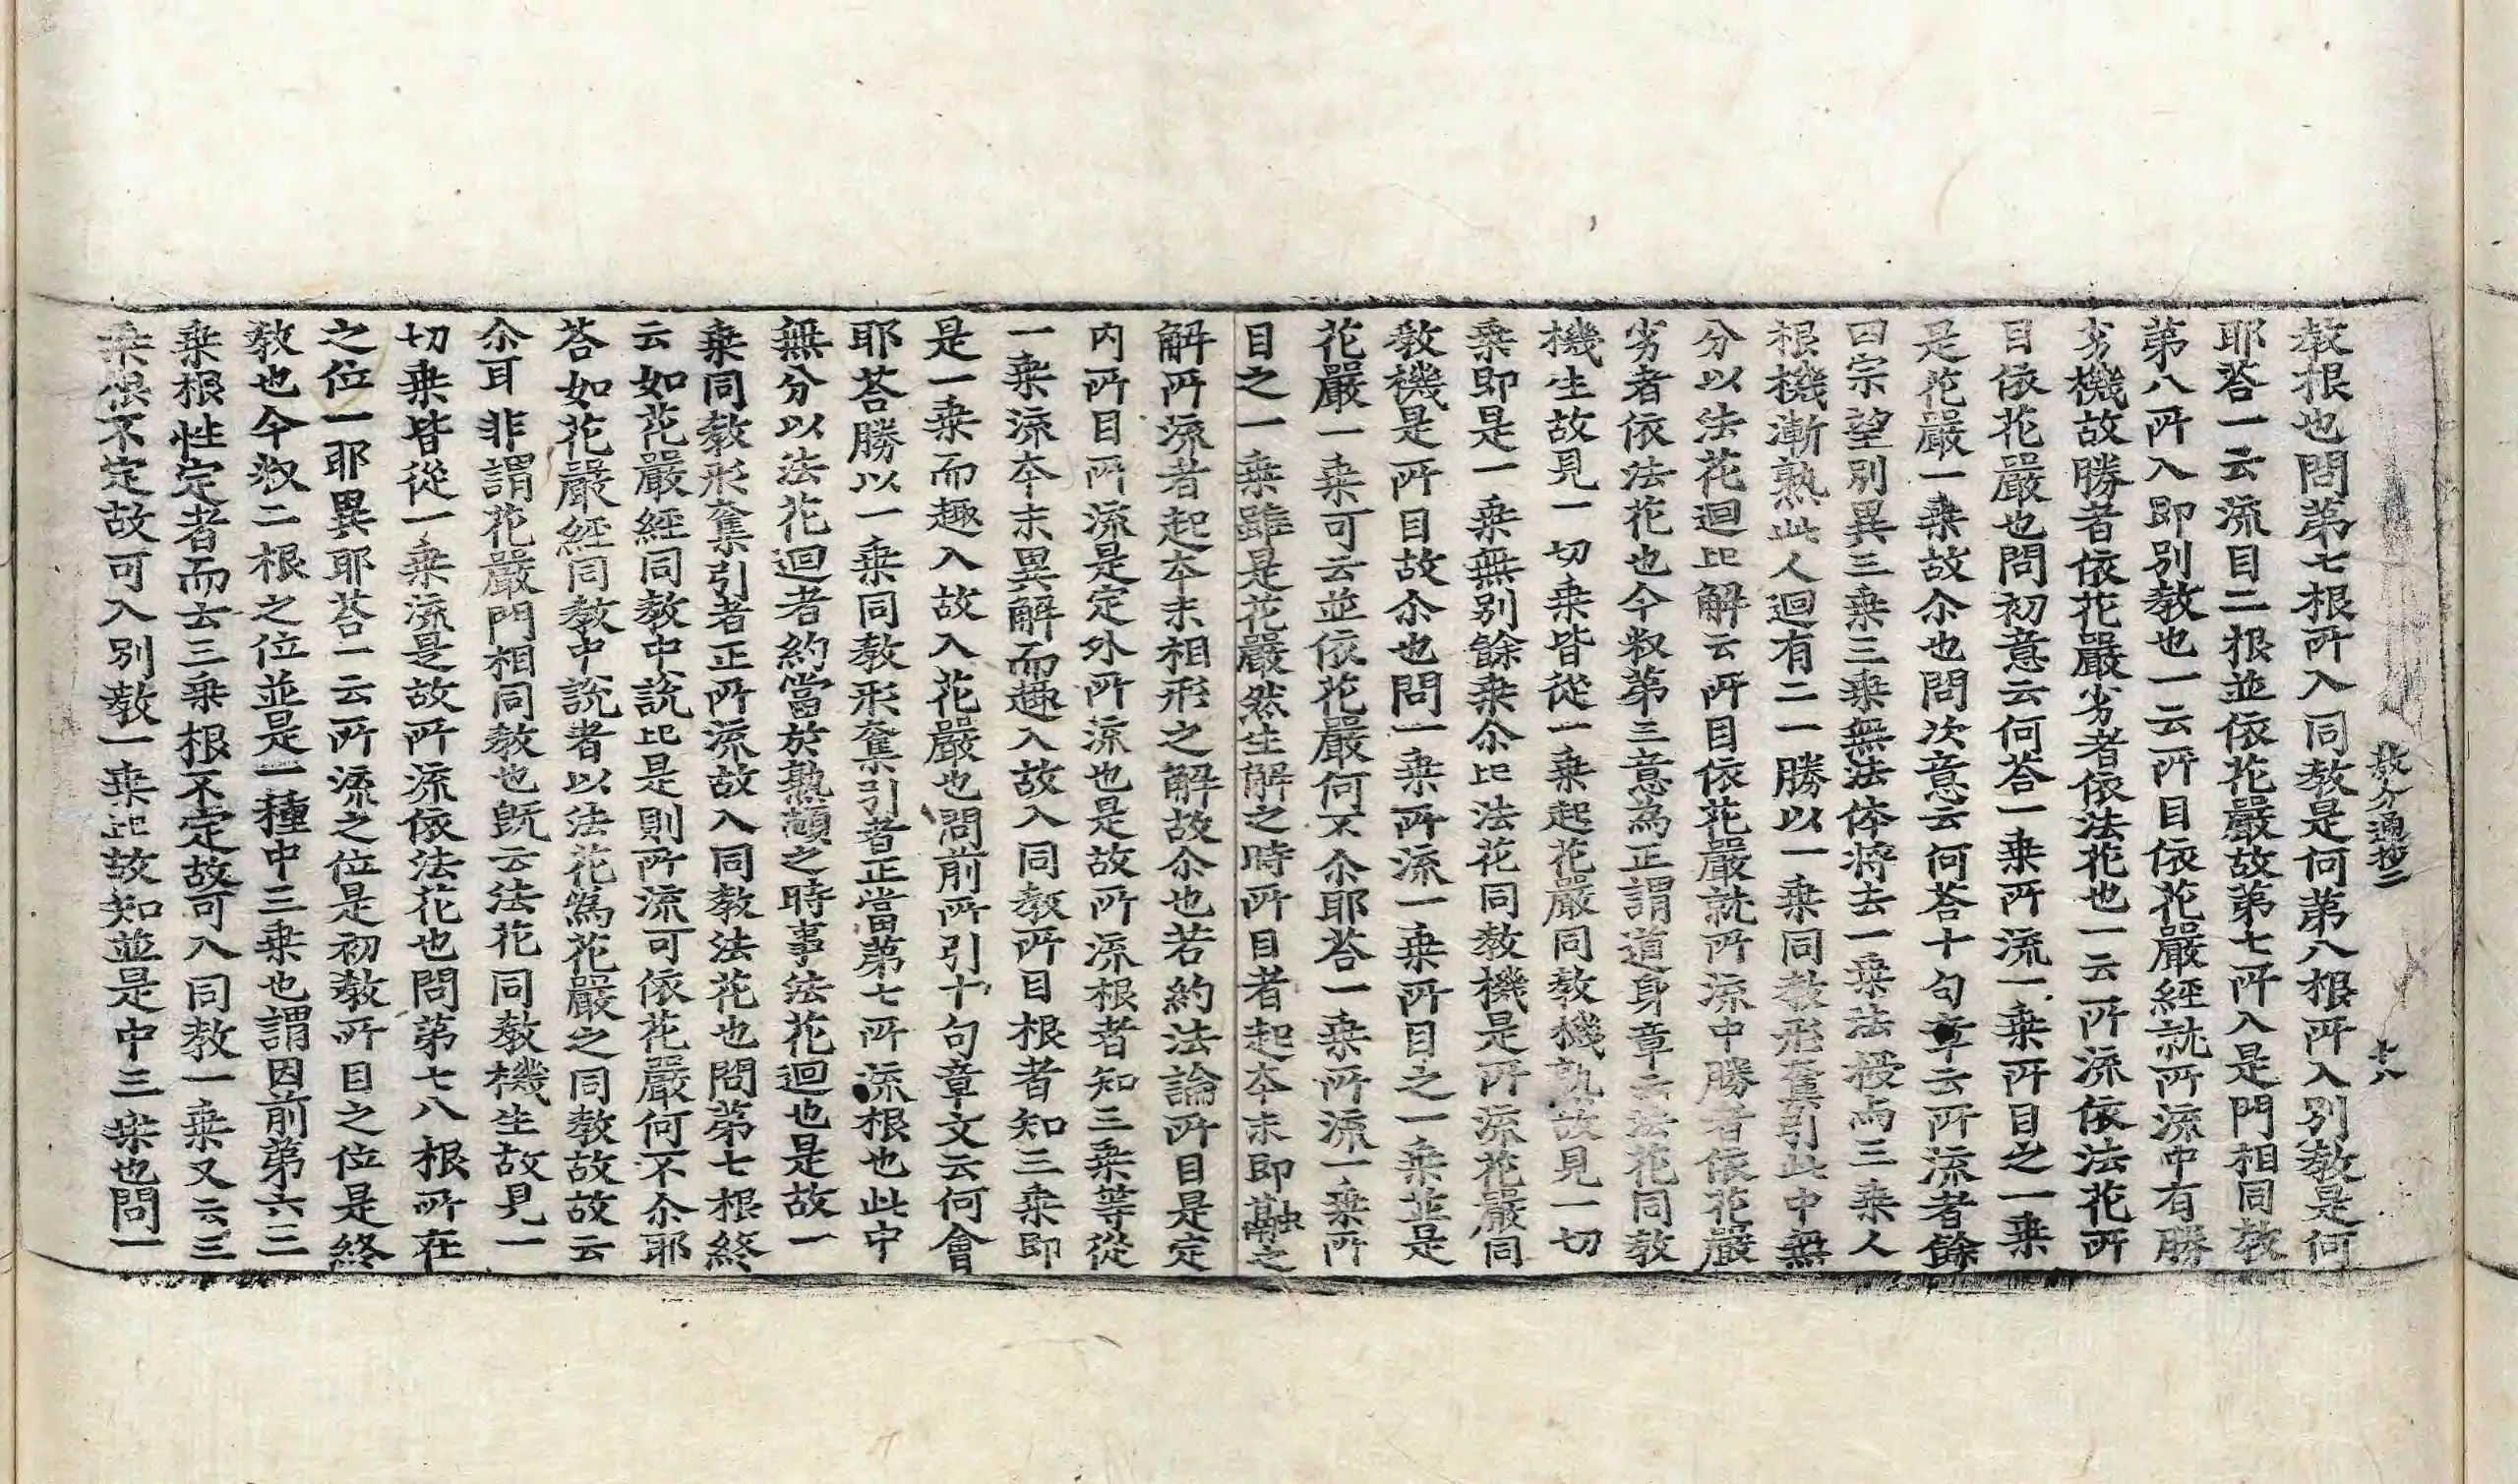 教分通抄二　十八
教根也問第七根所入同教是何第八根所入別教是何
耶荅一云流目二根並依花嚴故第七所入是門相同教
第八所入即別教也一云所目依花嚴經就所流中有勝
劣機故勝者依花嚴劣者依法花也一云所流依法花所
目依花嚴也問初意云何荅一乗所流一乗所目之一乗
是花嚴一乗故尒也問次意云何荅十句章云所流者餘
四宗望別異三乗三乗無法体将去一乗法授与三乗人
根機漸熟此人迴有二一勝以一乗同教形奪引此中無
分以法花迴比解云所目依花嚴就所流中勝者依花嚴
劣者依法花也今釈第三意為正謂道身章云法花同教
機生故見一切乗皆從一乗起花嚴同教機熟故見一切
乗即是一乗無別餘乗尒比法花同教機是所流花嚴同
教機是所目故尒也問一乗所流一乗所目之一乗並是
花嚴一乗可云並依花嚴何不尒耶荅一乗所流一乗所
目之一乗雖是花嚴然生解之時所目者起本末即融之
解所流者起本末相形之解故尒也若約法論所目是定
内所目所流是定外所流也是故所流根者知三乗等從
一乗流本末異解而趣入故入同教所目根者知三乗即
是一乗而趣入故入花嚴也問前所引十句章文云何會
耶荅勝以一乗同教形奪引者正當第七所流根也此中
無分以法花迴者約當於熟頭之時事法花迴也是故一
乗同教形奪引者正所流故入同教法花也問第七根終
云如花嚴經同教中說比是則所流可依花嚴何不尒耶
荅如花嚴經同教中說者以法花為花嚴之同教故故云
尒耳非謂花嚴門相同教也旣云法花同教機生故見一
切乗皆從一乗流是故所流依法花也問第七八根所在
之位一耶異耶荅一云所流之位是初教所目之位是終
教也今㳤二根之位並是一種中三乗也謂因前第六三
乗根性定者而去三乗根不定故可入同教一乗又云三
乗根不定故可入別教一乗比故知並是中三乗也問一